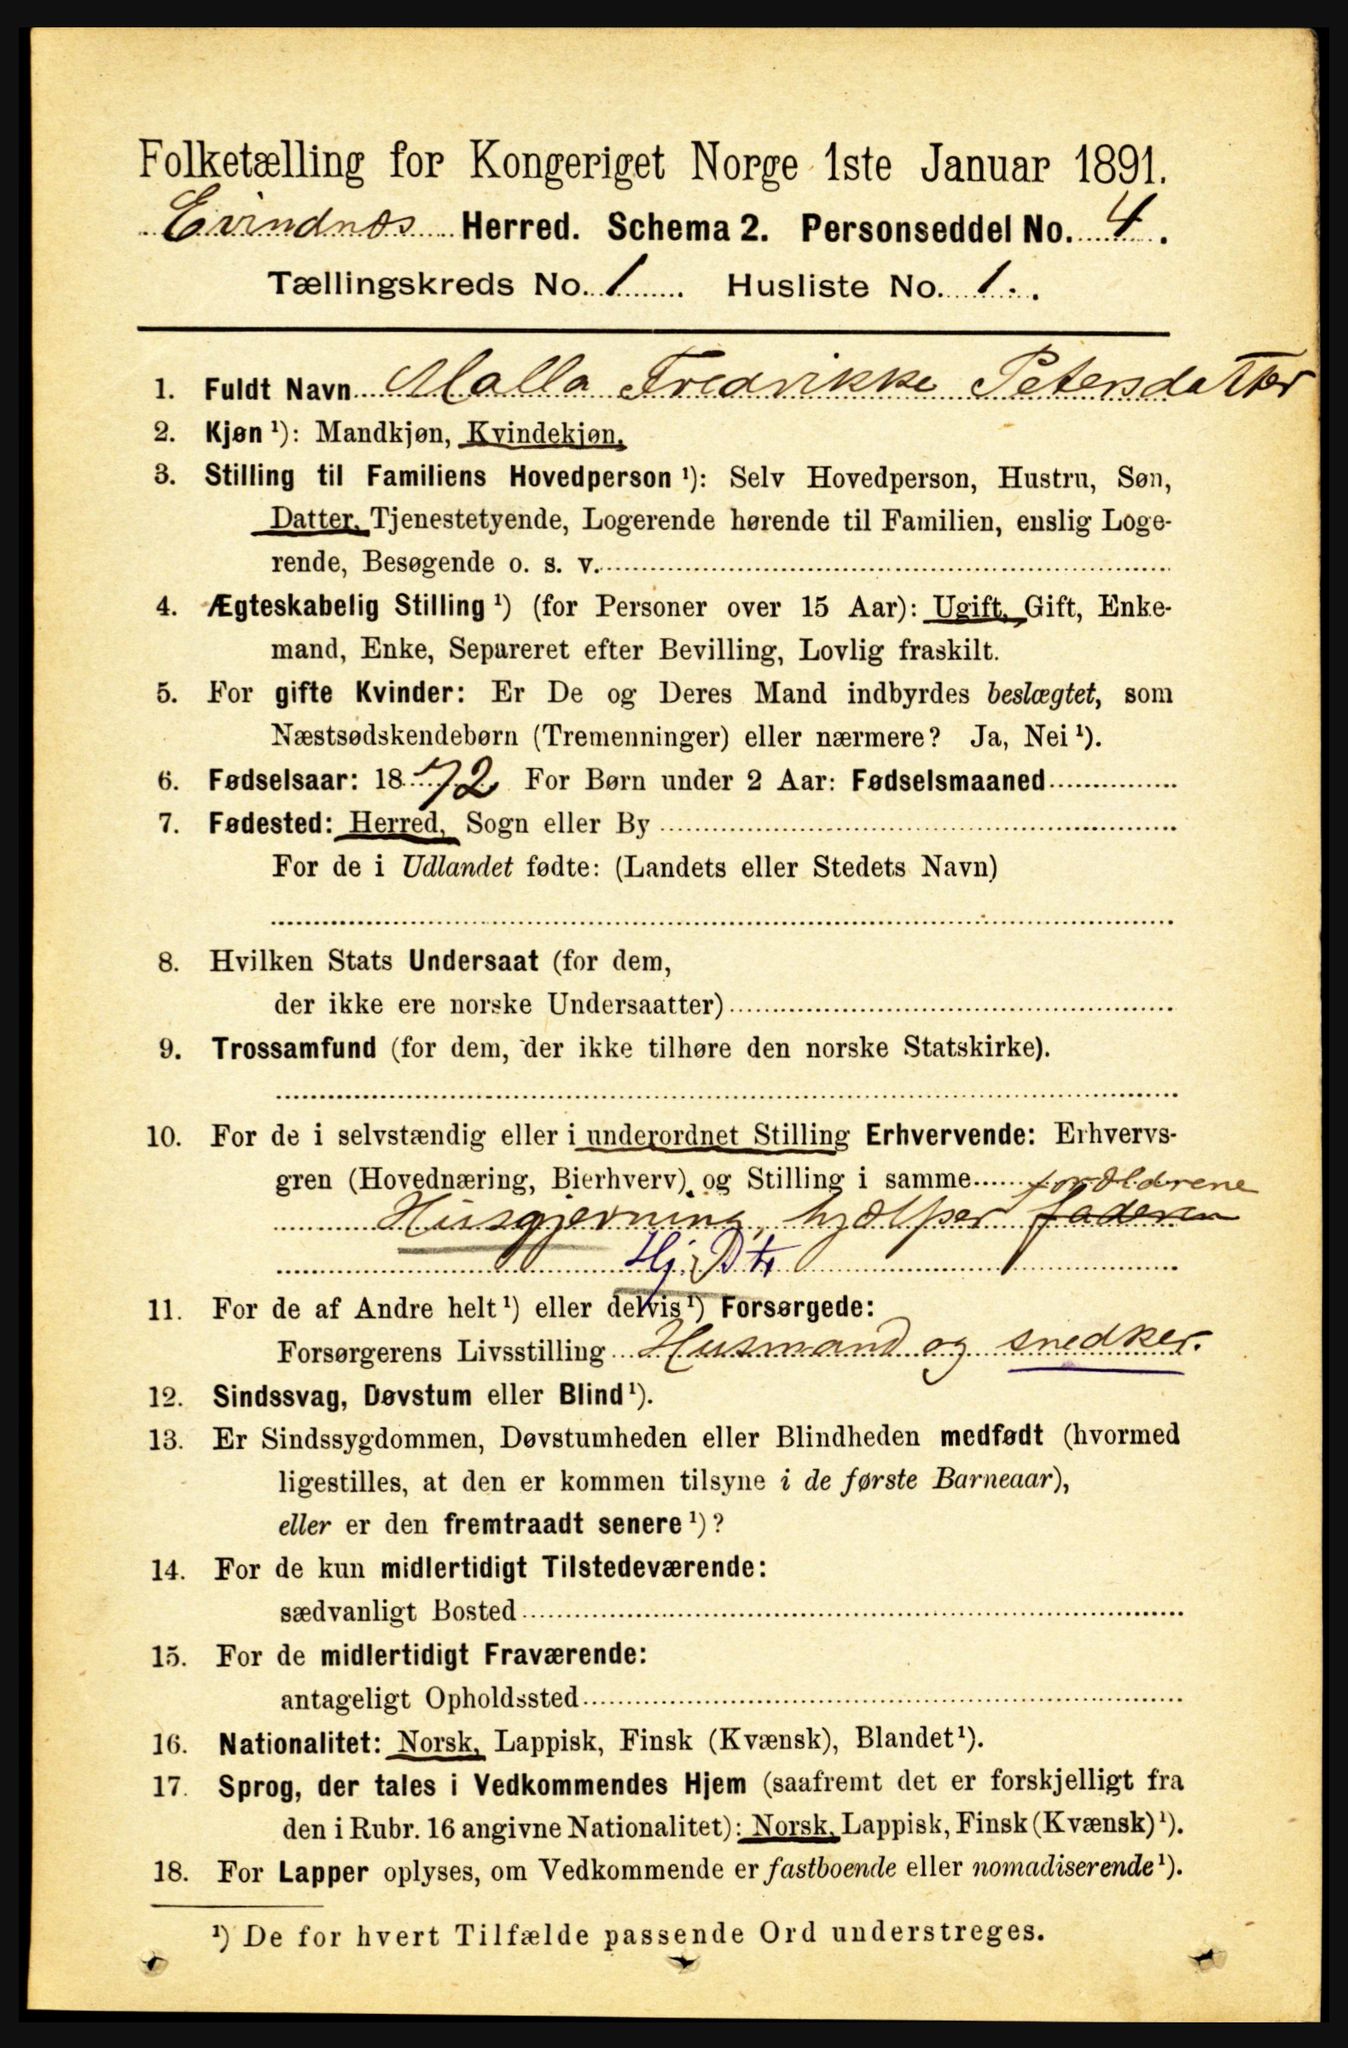 Folketælling for Kongeriget Norge 1ste Januar 1891.
Evindnæs Herred. Schema 2. Personseddel No. 4.
Tællingskreds No. 1. Husliste No. 1.
1. Fuldt Navn Malla Fredrikke Petersdatter
2. Kjøn ¹): Mandkjøn, Kvindekjøn.
3. Stilling til Familiens Hovedperson ¹): Selv Hovedperson, Hustru, Søn,
Datter, Tjenestetyende, Logerende hørende til Familien, enslig Loge-
rende, Besøgende o. s. v.
4. Ægteskabelig Stilling ¹) (for Personer over 15 Aar): Ugift, Gift, Enke-
mand, Enke, Separeret efter Bevilling, Lovlig fraskilt.
5. For gifte Kvinder: Er De og Deres Mand indbyrdes beslægtet, som
Næstsødskendebørn (Tremenninger) eller nærmere? Ja, Nei ¹).
6. Fødselsaar: 1872 For Børn under 2 Aar: Fødselsmaaned
7. Fødested: Herred, Sogn eller By
For de i Udlandet fødte: (Landets eller Stedets Navn)
8. Hvilken Stats Undersaat (for dem,
der ikke ere norske Undersaatter)
9. Trossamfund (for dem, der ikke tilhøre den norske Statskirke).
10. For de i selvstændig eller i underordnet Stilling Erhvervende: Erhvervs-
gren (Hovednæring, Bierhverv) og Stilling i samme forældrene
Husgjerning, hjælper faderen
Hj. Dtr
11. For de af Andre helt ¹) eller delvis ¹) Forsørgede:
Forsørgerens Livsstilling Husmand og snedker.
12. Sindssvag, Døvstum eller Blind ¹).
13. Er Sindssygdommen, Døvstumheden eller Blindheden medfødt (hvormed
ligestilles, at den er kommen tilsyne i de første Barneaar),
eller er den fremtraadt senere ¹)?
14. For de kun midlertidigt Tilstedeværende:
sædvanligt Bosted
15. For de midlertidigt Fraværende:
antageligt Opholdssted
16. Nationalitet: Norsk, Lappisk, Finsk (Kvænsk), Blandet ¹).
17. Sprog, der tales i Vedkommendes Hjem (saafremt det er forskjelligt fra
den i Rubr. 16 angivne Nationalitet): Norsk, Lappisk, Finsk (Kvænsk) ¹).
18. For Lapper oplyses, om Vedkommende er fastboende eller nomadiserende ¹).
¹) De for hvert Tilfælde passende Ord understreges.